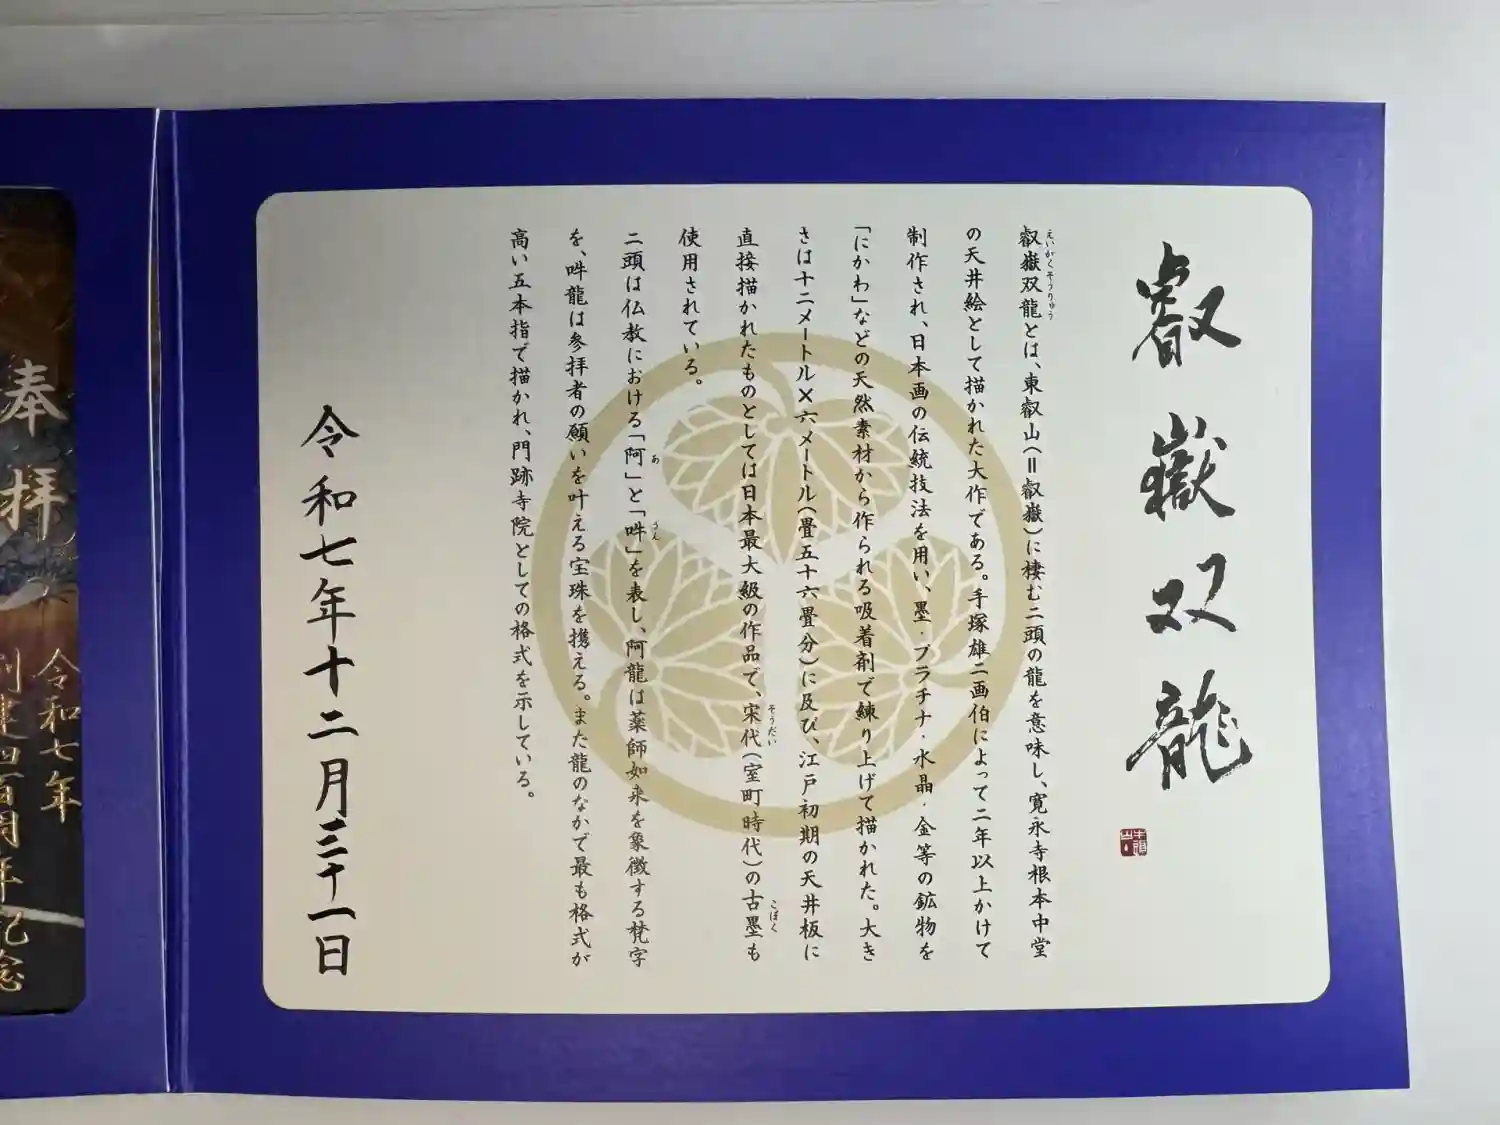 叡嶽双龍
叡嶽双龍とは、東叡山（＝叡嶽）に棲む二頭の龍を意味し、寛永寺根本中堂
えいがくそうりゅう
の天井絵として描かれた大作である。手塚雄二画伯によって二年以上かけて
制作され、日本画の伝統技法を用い、墨・プラチナ・水晶・金等の鉱物を
「にかわ」などの天然素材から作られる吸着剤で練り上げて描かれた。大き
さは十二メートル×六メートル（畳五十六畳分）に及び、江戸初期の天井板に
直接描かれたものとしては日本最大級の作品で、宋代（室町時代）の古墨も
そうだい
こぼく
使用されている。
二頭は仏教における「阿」と「吽」を表し、阿龍は薬師如来を象徴する梵字
あ
うん
を、吽龍は参拝者の願いを叶える宝珠を携える。また龍のなかで最も格式が
高い五本指で描かれ、門跡寺院としての格式を示している。
令和七年十二月三十一日
奉拝
令和七年
創建四百周年記念